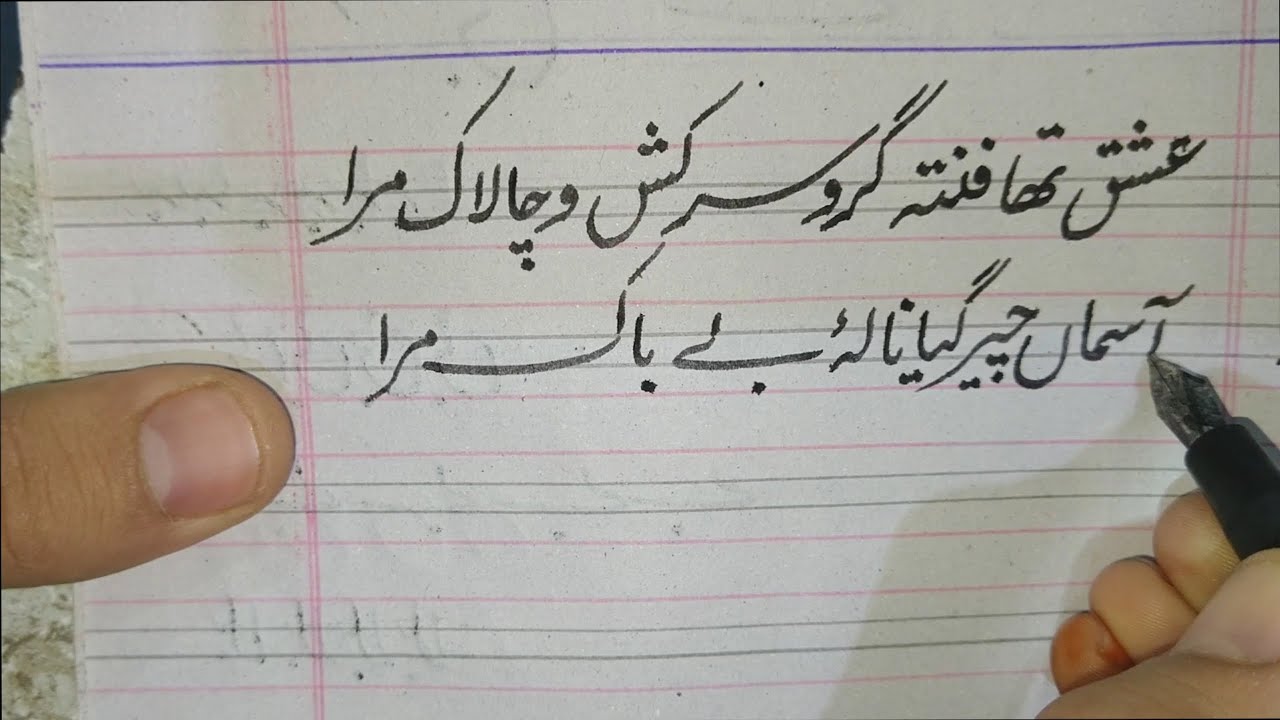 عشق تھا فتنہ گر و سرکش و چالاک مرا
آسماں چیر گیا نالۂ بے باک مرا